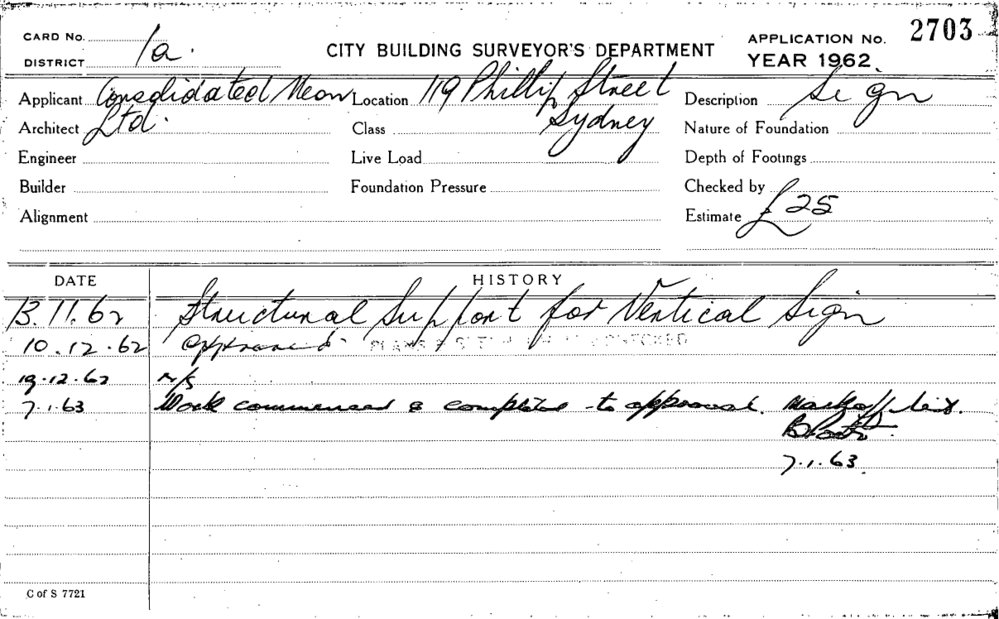 CARD No.
DISTRICT 1a.
CITY BUILDING SURVEYOR'S DEPARTMENT
APPLICATION No. 2703
YEAR 1962
Applicant Consolidated Neon Location 119 Phillip Street Description Sign
Architect Ltd. Class Sydney Nature of Foundation
Engineer Live Load Depth of Footings
Builder Foundation Pressure Checked by
Alignment Estimate £25
DATE HISTORY
13.11.62 Structural Support for Vertical Sign
10.12.62 approved PLANS
19.12.62 N/S
7.1.63 Work commenced & completed to approval.
7.1.63.
C of S 7721